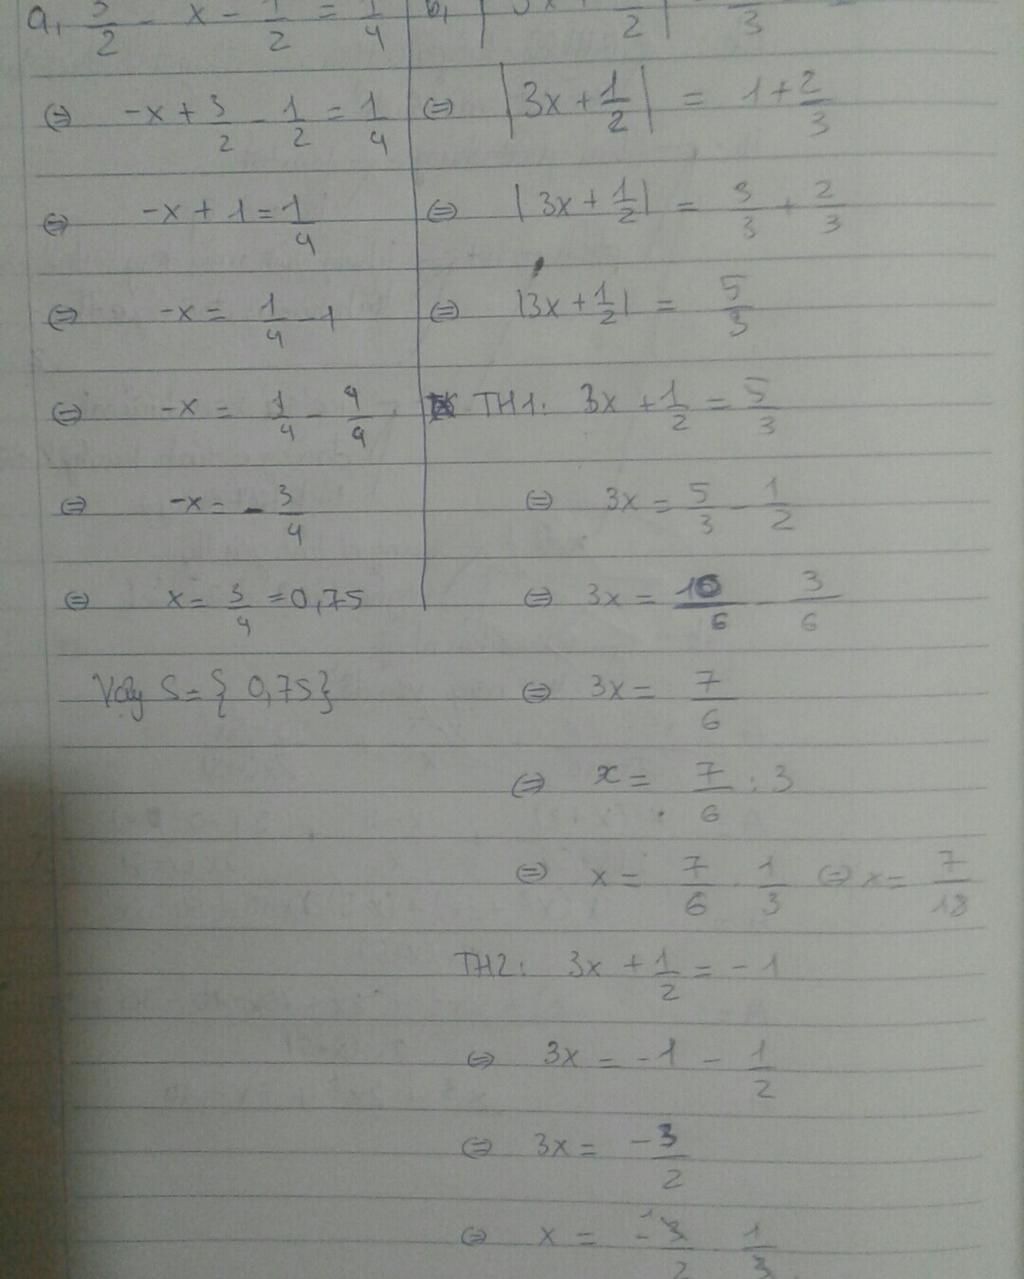 a, 3/2 - x - 1/2 = 1/4
⇔ -x + 3/2 - 1/2 = 1/4
⇔ -x + 1 = 1/4
⇔ -x = 1/4 - 1
⇔ -x = 1/4 - 4/4
⇔ -x = - 3/4
⇔ x = 3/4 = 0,75
Vậy S = { 0,75}
b,
⇔ |3x + 1/2| = 1 + 2/3
⇔ |3x + 1/2| = 3/3 + 2/3
⇔ |3x + 1/2| = 5/3
TH1: 3x + 1/2 = 5/3
⇔ 3x = 5/3 - 1/2
⇔ 3x = 10/6 - 3/6
⇔ 3x = 7/6
⇔ x = 7/6 : 3
⇔ x = 7/6 . 1/3 ⇔ x = 7/18
TH2: 3x + 1/2 = -1
⇔ 3x = -1 - 1/2
⇔ 3x = -3/2
⇔ x = -3/2 1/3